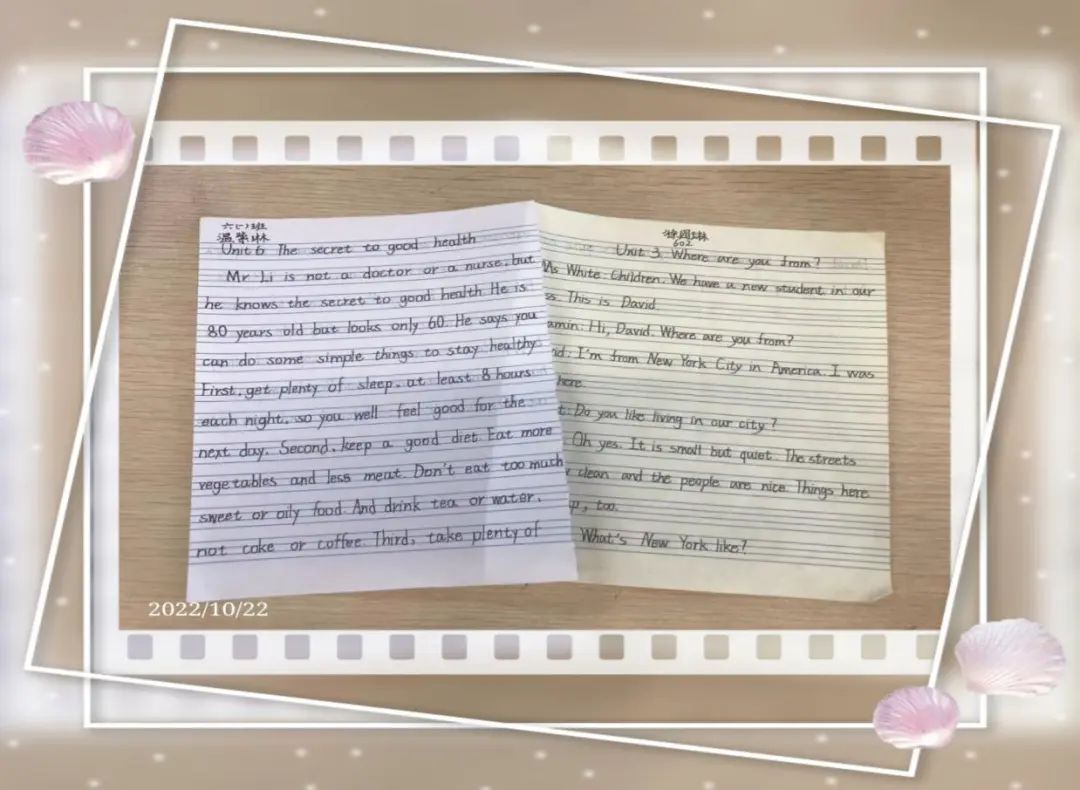 六(一)班
温紫琳
Unit 6 The secret to good health
Mr Li is not a doctor or a nurse, but
he knows the secret to good health. He is
80 years old but looks only 60. He says you
can do some simple things to stay healthy.
First, get plenty of sleep, at least 8 hours
each night, so you well feel good for the
next day. Second, keep a good diet. Eat more
vegetables and less meat. Don't eat too much
sweet or oily food. And drink tea or water,
not coke or coffee. Third, take plenty of
602
Unit 3 Where are you from?
Ms White: Children. We have a new student in our
ss. This is David.
amin: Hi, David. Where are you from?
id: I'm from New York City in America. I was
here.
t: Do you like living in our city?
Oh yes. It is small but quiet. The streets
clean and the people are nice. Things here
p, too.
What's New York like?
2022/10/22